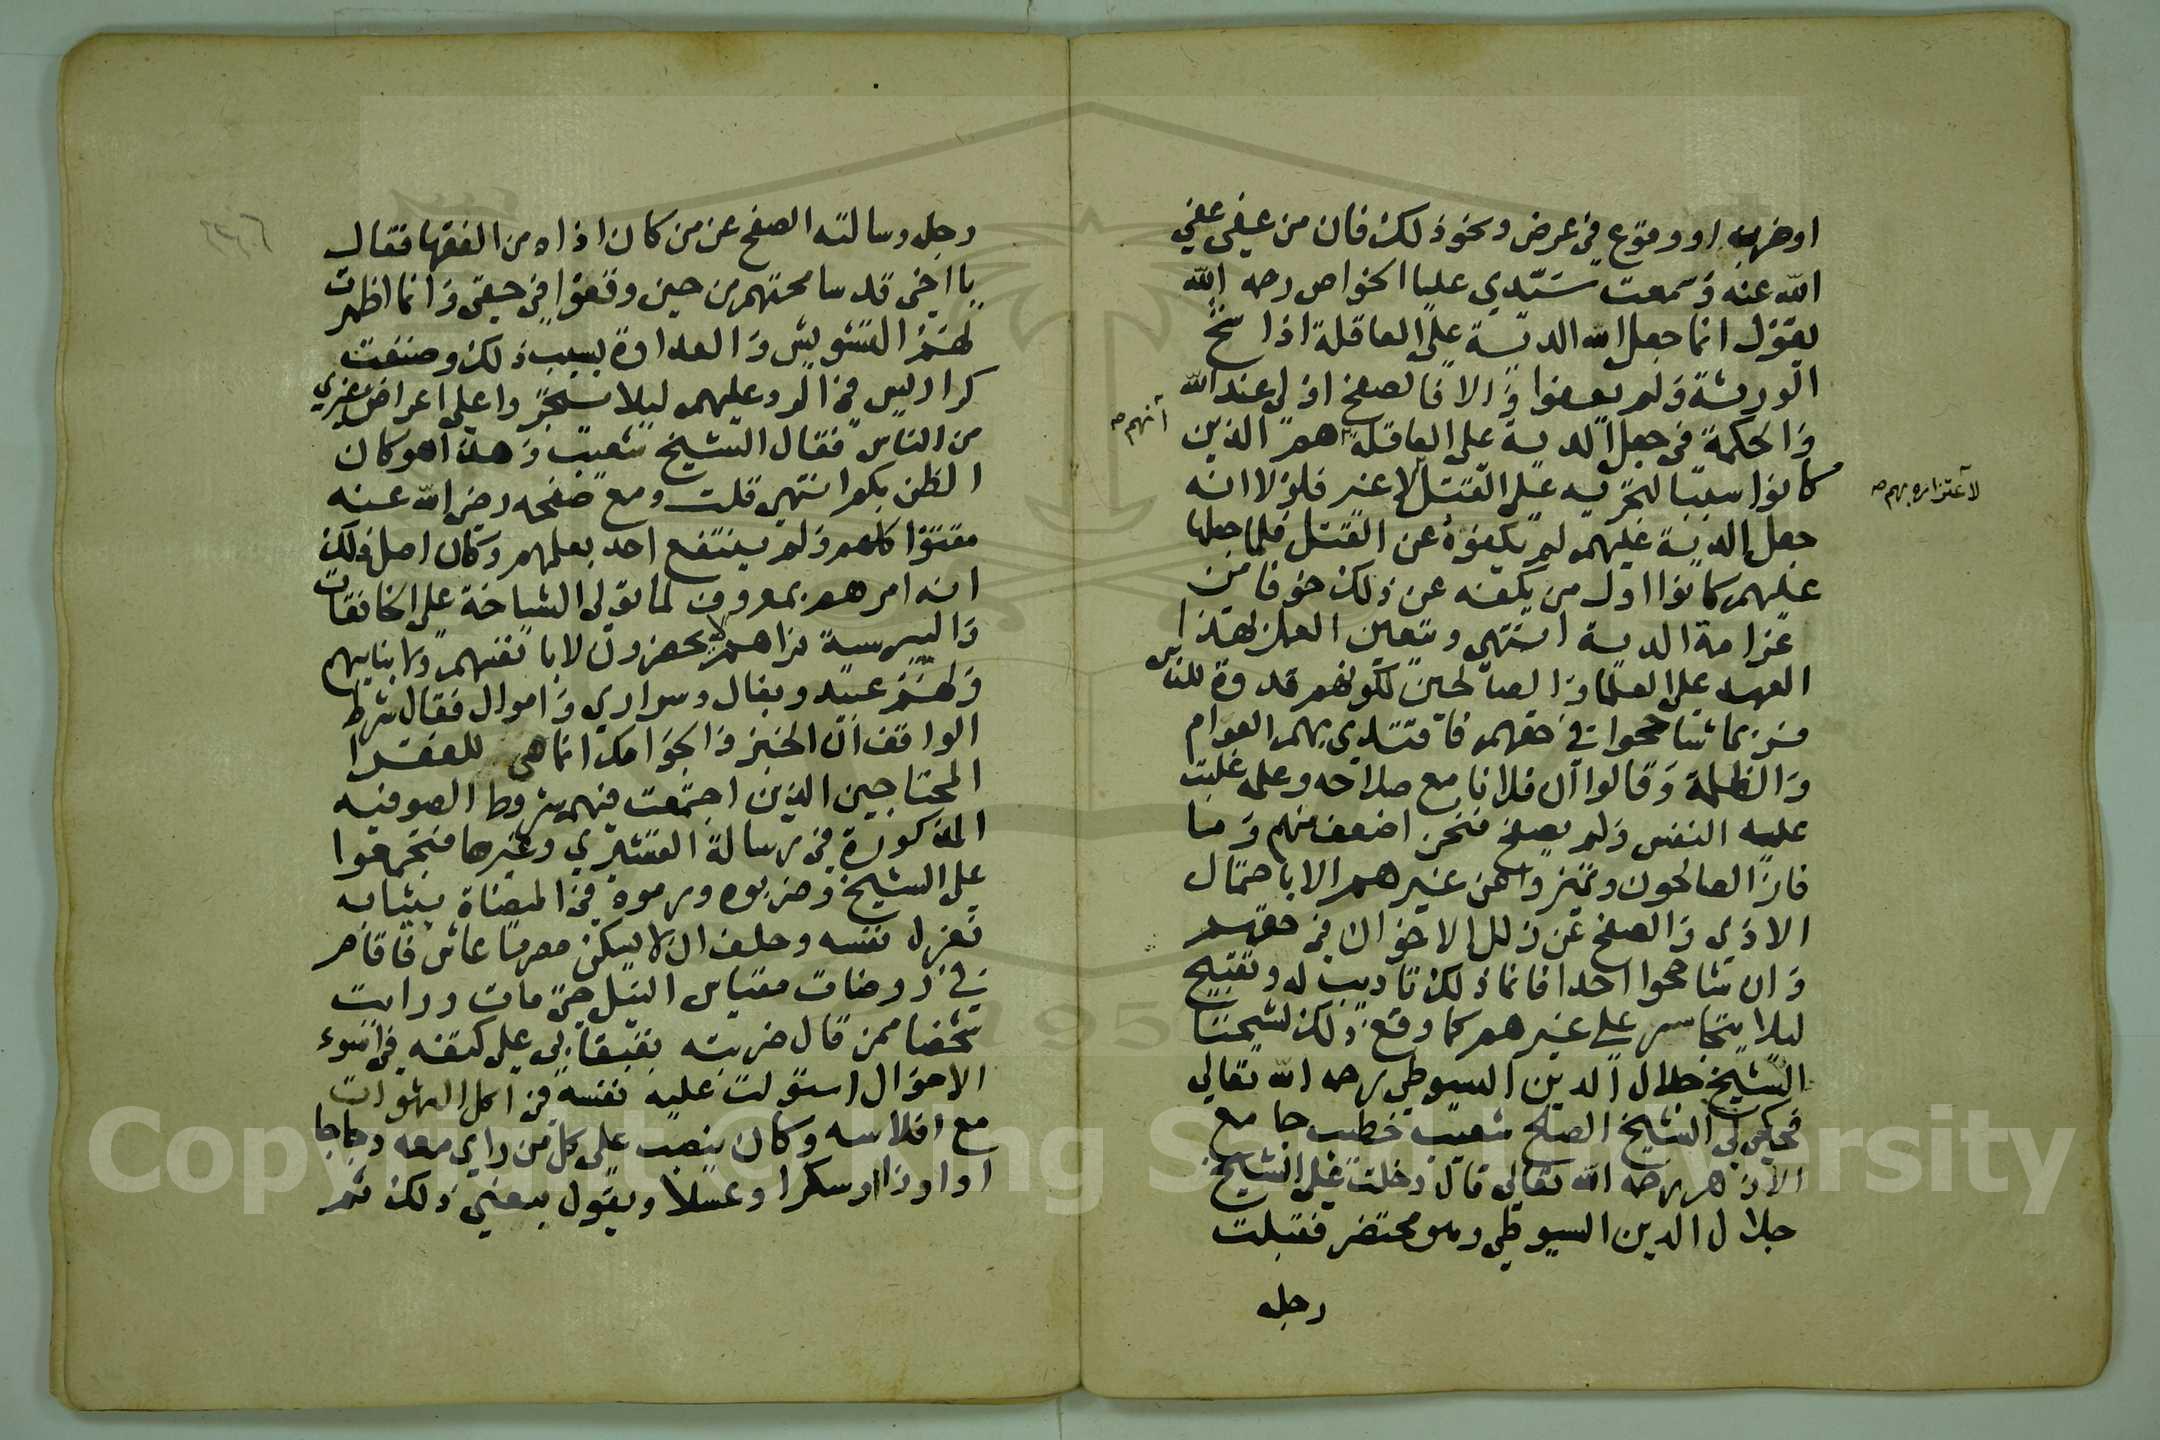 او ضرب او وقوع في عرض ونحو ذلك فان من عفى عفي
الله عنه وسمعت سيدي عليا الخواص رحمه الله
يقول انما جعل الله الدية على العاقلة اذا شح
الورثة ولم يعفوا والا فالصفح اولى عند الله
والحكمة في جعل الدية على العاقلة هم الذين
انهم صح
كانوا سببا لتجريه على القتل لا غير فلولا انه
لاعتزازه بهم صح
جعل الدية عليهم لم يكفوه عن القتل فلما جعلها
عليهم كانوا اول من يكفه عن ذلك خوفا من
غرامة الدية انتهى ويتعين العمل لهذا
العهد على العلما والصالحين لكونهم قدوة للناس
فربما تشاححوا في حقهم فاقتدي بهم العوام
والظلمة وقالوا ان فلانا مع صلاحه وعلمه غلبت
عليه النفس ولم يصفح فنحن اضعف منهم وما
فاز الصالحون وتميزوا عن غيرهم الا باحتمال
الاذي والصفح عن زلل الاخوان في حقهم
وان تشاححوا احدا فانما ذلك تاديب له وتقبيح
ليلا يتجاسر على غيرهم كما وقع ذلك لشيخنا
الشيخ جلال الدين السيوطي رحمه الله تعالى
فحكى لي الشيخ الصالح شعيب خطيب جامع
الازهر رحمه الله تعالى قال دخلت على الشيخ
جلال الدين السيوطي وهو محتضر فقبلت
رجله
رجله وسالته الصفح عن من كان اذاه من الفقها فقال
يا اخي قد سامحتهم من حين وقعوا في حقي وانما اظهرت
لهم التشويش والعداوة بسبب ذلك وصنفت
كراريس في الرد عليهم ليلا يتجروا على اعراض غيري
من الناس فقال الشيخ شعيب وهذا هو كان
الظن بكم انتهى قلت ومع صفحه رضي الله عنه
مقتوا كلهم ولم ينتفع احد بعلمهم وكان اصل ذلك
انه امرهم بمعروف لما تولى الشياخة على الخانقات
والبيبرسية فراهم لا يحضرون لا بانفسهم ولا بنايبهم
ولهم عبيد وبغال وسراري واموال فقال شرط
الواقف ان الخبز والجوامك انما هي للفقرا
المحتاجين الذين اجتمعت فيهم شروط الصوفيه
المذكورة في رسالة القشيري وغيرها فتجمعوا
على الشيخ وضربوه ورموه في الميضاة بثيابه
فعزل نفسه وحلف ان لا يسكن مصر ما عاش فاقام
في روضات مقياس النيل حتى مات ورايت
شخصا ممن قال ضربته بقبقابي على كتفه في اسوء
الاحوال استولت عليه نفسه في اكل الشهوات
مع افلاسه وكان ينصب على كل من راي معه دجاجا
او اوزا او سكرا وعسلا ويقول بعني ذلك ثم